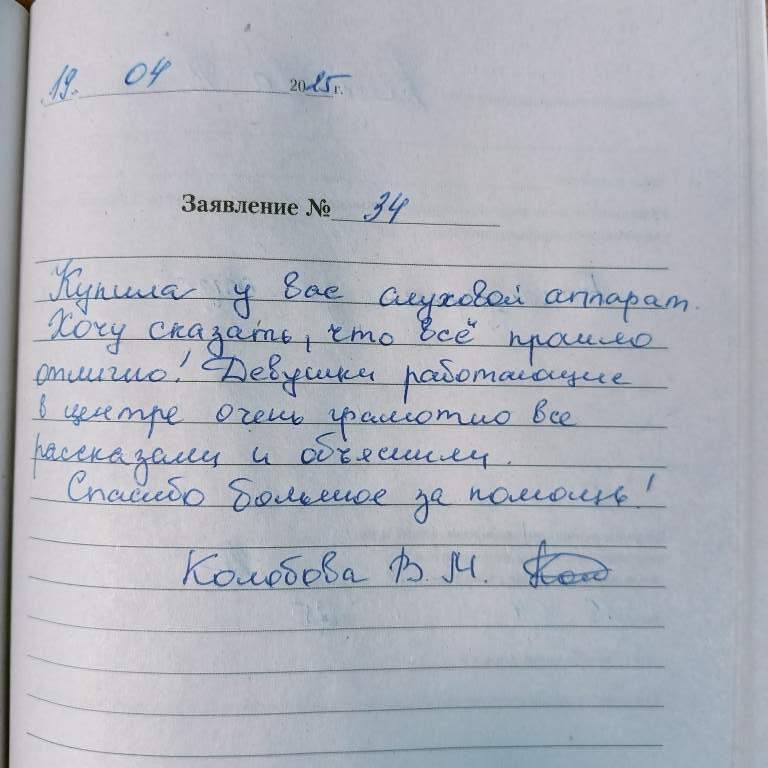 19. 04 2025 г.
Заявление № 34
Купила у вас слуховой аппарат.
Хочу сказать, что всё прошло
отлично! Девушки работающие
в центре очень грамотно все
рассказали и объяснили.
Спасибо большое за помощь!
Колобова В. М.